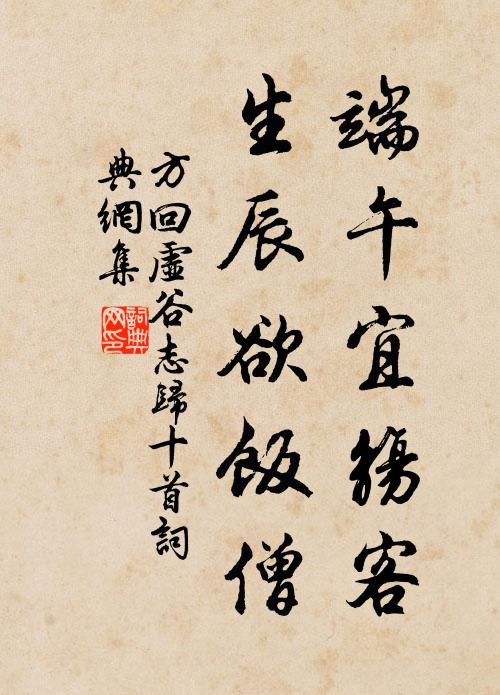 端午宜觴客
生辰欲飯僧
方回虛谷志歸十首詞
典網集
詞典
网印